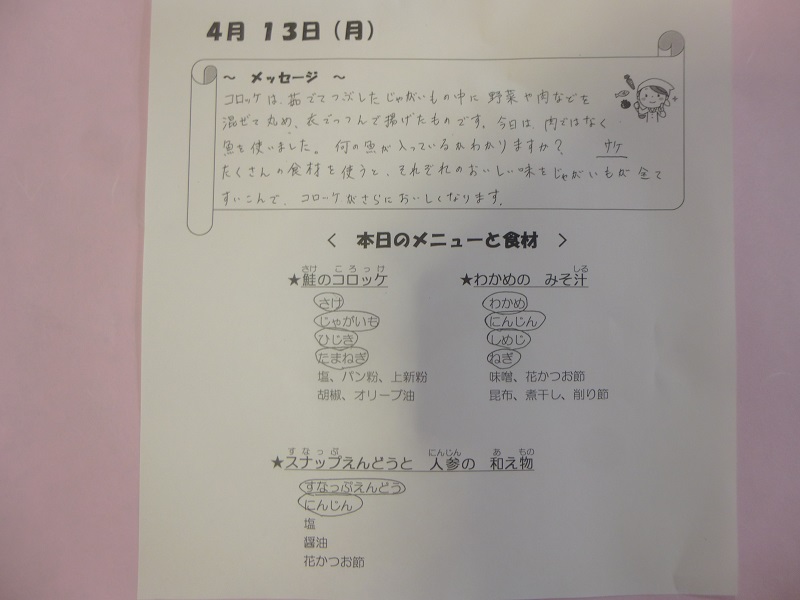 4月 13日（月）
～ メッセージ ～
コロッケは、茹でてつぶしたじゃがいもの中に 野菜や肉などを
混ぜて丸め、衣でつつんで揚げたものです。今日は、肉ではなく
魚を使いました。何の魚が入っているかわかりますか？ サケ
たくさんの食材を使うと、それぞれのおいしい味をじゃがいもが全て
すいこんで、コロッケがさらにおいしくなります。
＜ 本日のメニューと食材 ＞
さけ ころっけ
★鮭のコロッケ
さけ
じゃがいも
ひじき
たまねぎ
塩、パン粉、上新粉
胡椒、オリーブ油
しる
★わかめの みそ汁
わかめ
にんじん
しめじ
ねぎ
味噌、花かつお節
昆布、煮干し、削り節
すなっぷ にんじん あ もの
★スナップえんどうと 人参の 和え物
すなっぷえんどう
にんじん
塩
醤油
花かつお節